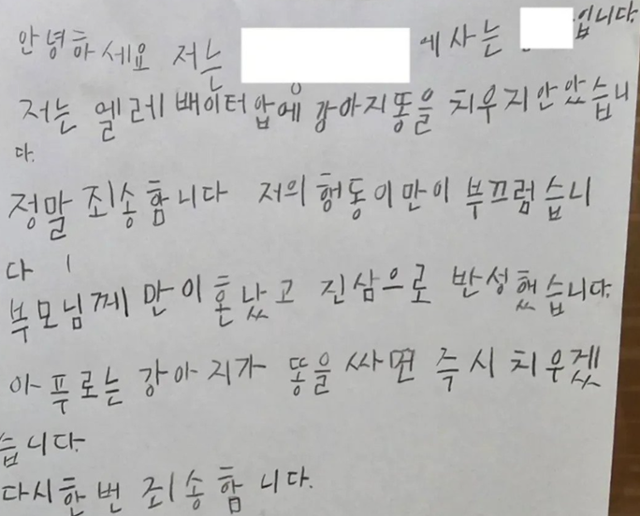 안녕하세요 저는 에사는 입니다.
저는 엘레배이터압에 강아지똥을 치우지안았습니
다.
정말 죄송함니다 저의 행동이만이 부끄럼습니
다
부모님께 만이혼났고 진삼으로 반성했습니다.
아푸로는 강아지가 똥을 싸면 즉시 치우겠
습니다.
다시한번 죄송함니다.